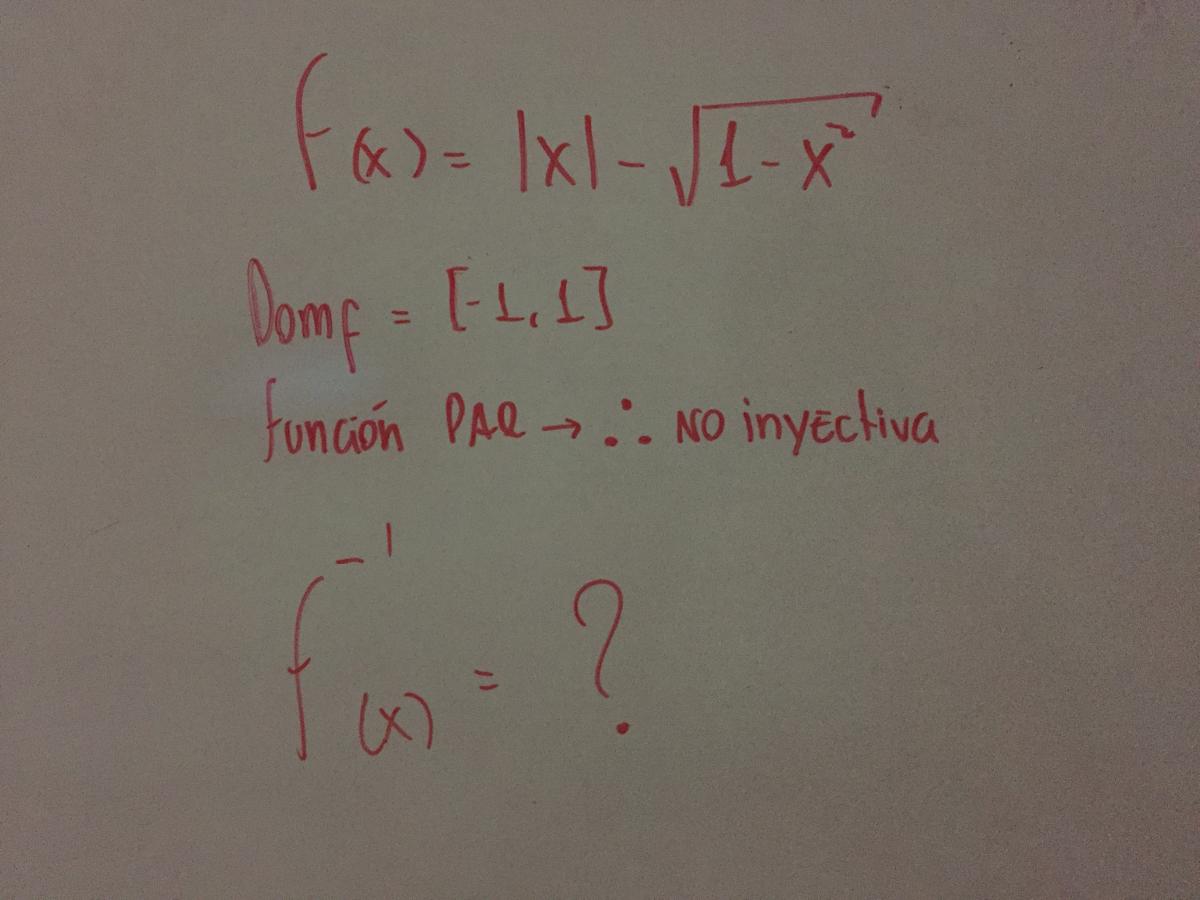 f(x) = |x| - √1-x²
Domf = [-1,1]
función PAR → ∴ NO inyectiva
f⁻¹(x) = ?